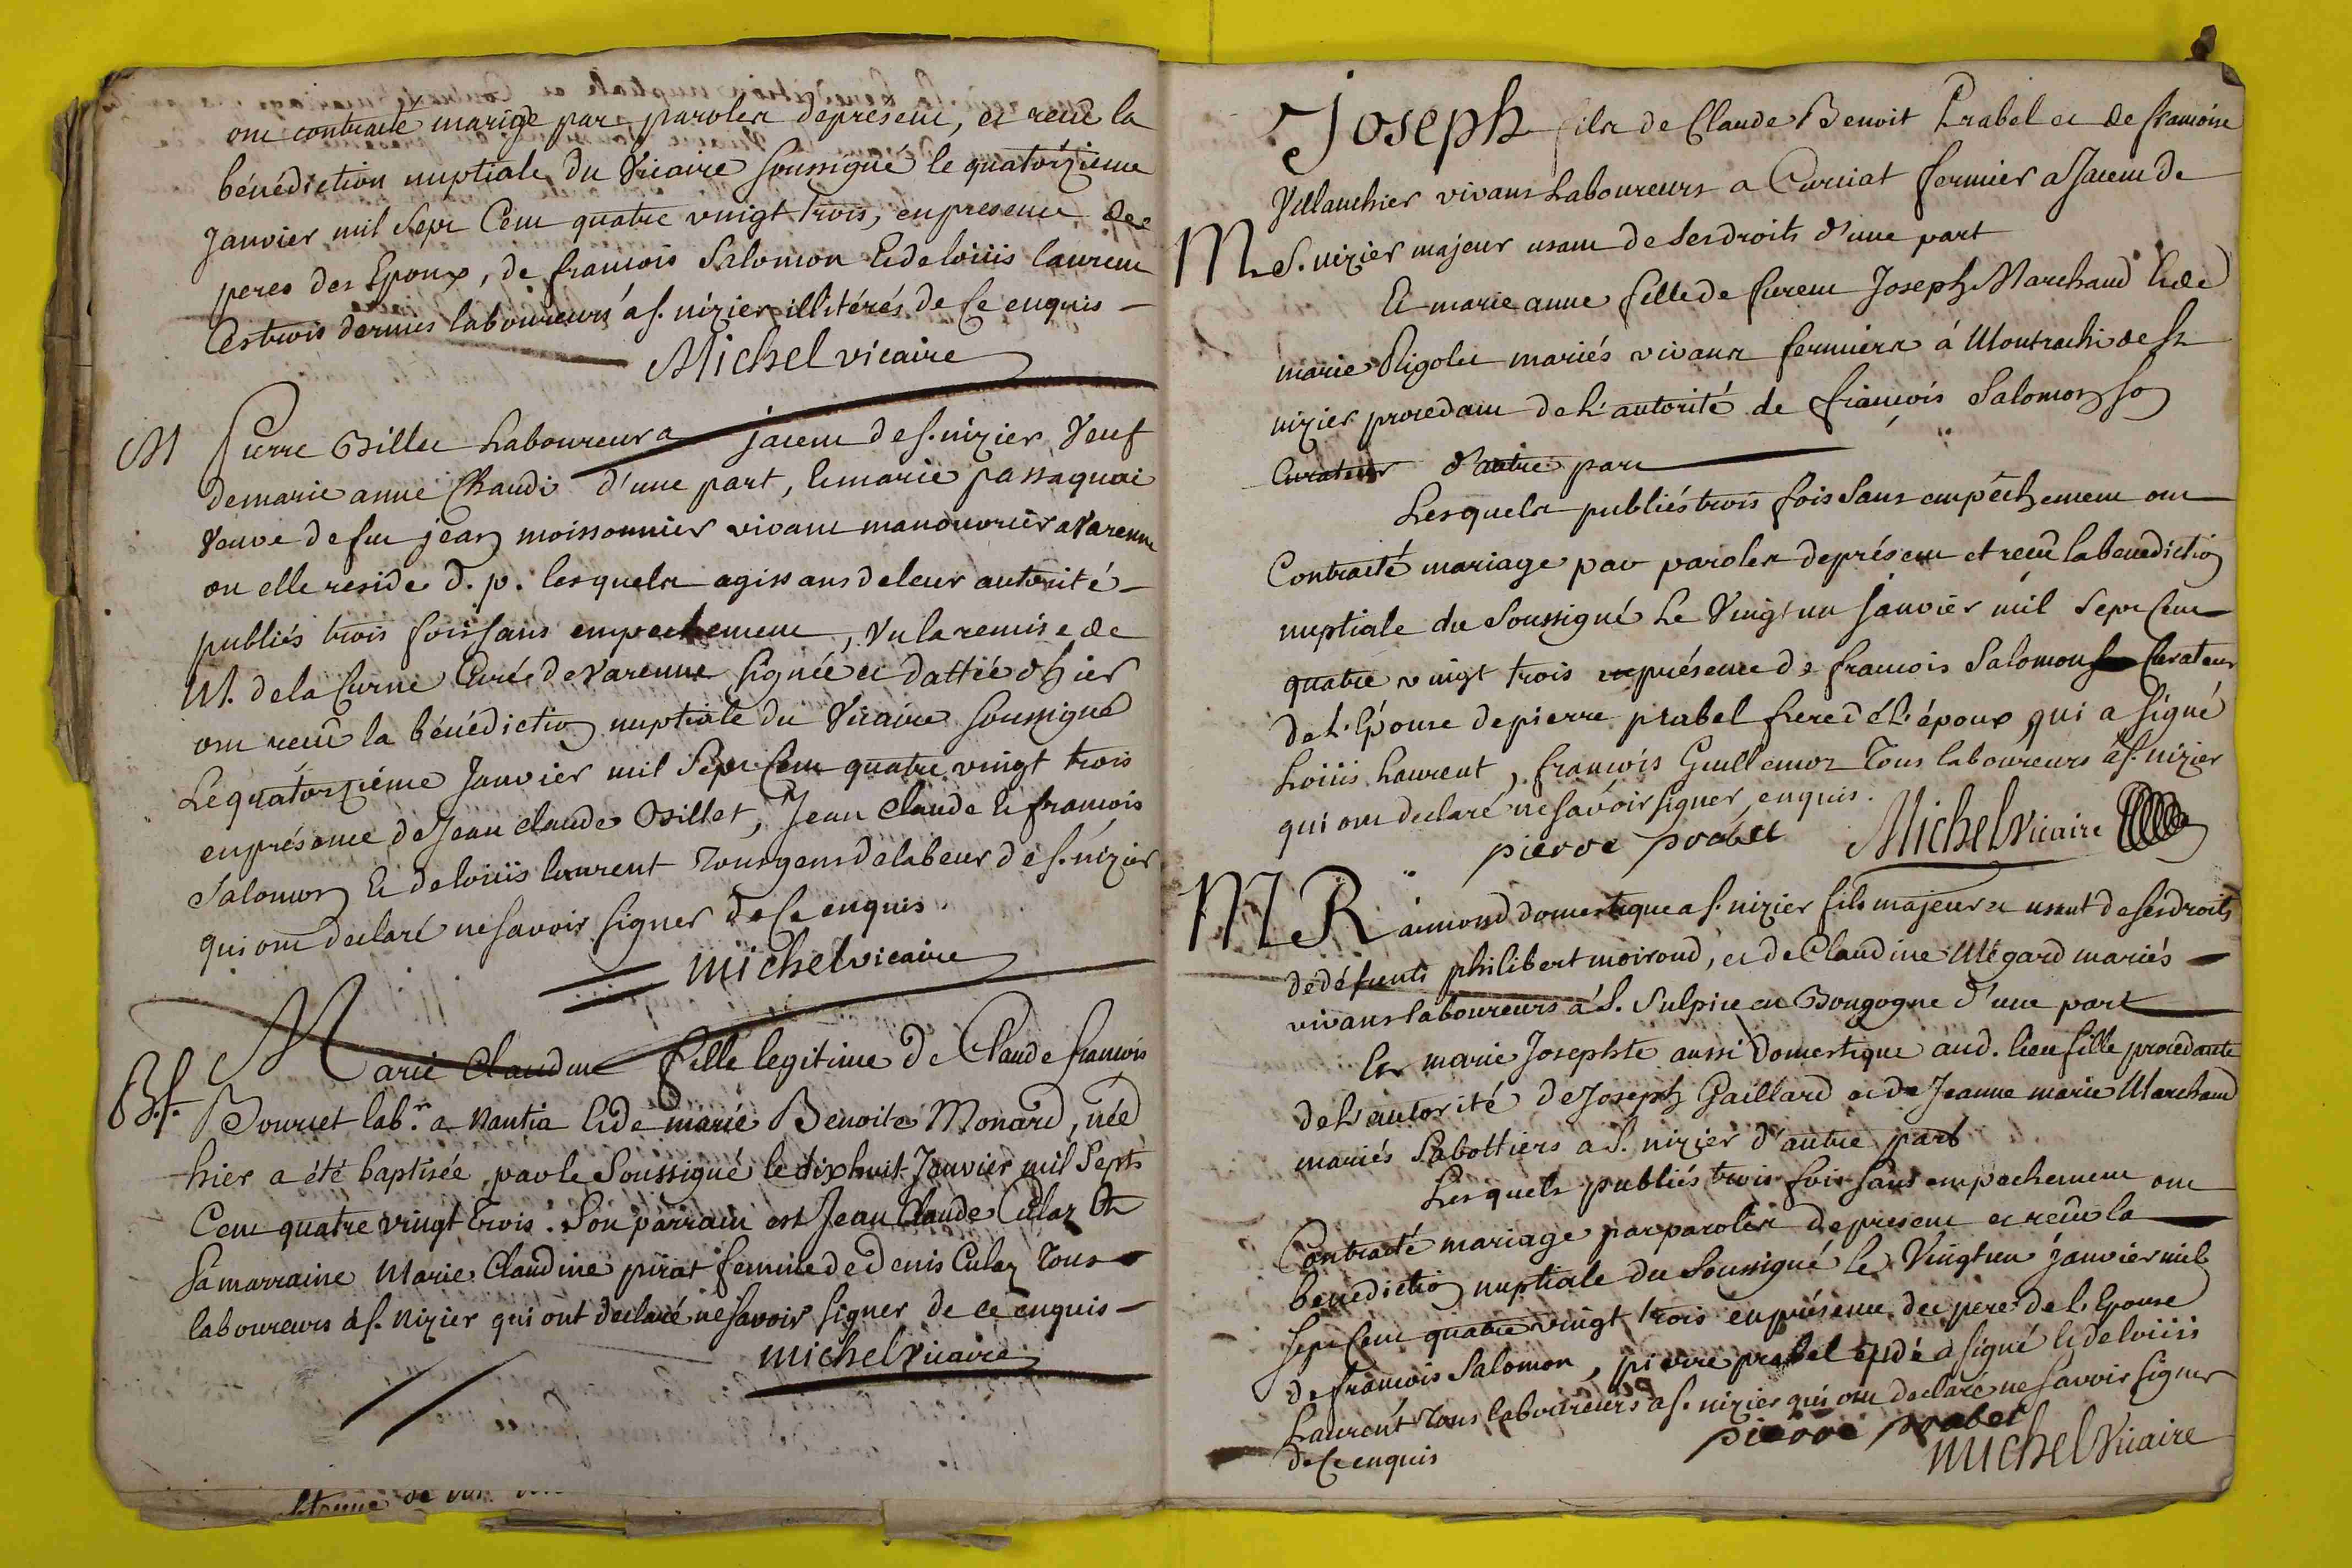 ont contracté marige par paroles de présent, et recu la
bénédiction nuptiale du Vicaire soussigné le quatorzieme
janvier mil sept Cent quatre vingt trois, en presence des
peres des Epoux, de francois Salomon et de loüis laurent
Ces trois derniers laboureurs à s. nizier illitérés de Ce enquis
Michel vicaire
M Pierre Billet Laboureur a jacent de s. nizier Veuf
de marie anne Chaudi d'une part, et marie passaquai
Veuve de feu jean moissonnier vivant manouvrier a Varenne
ou elle reside d. p. lesquels agissans de leur autorité
publiés trois fois sans empechement, vu la remise de
M. de la Curne Curé de Varenne signée et dattée d'hier
ont recu la bénédiction nuptiale du Vicaire soussigné
Le quatorzième Janvier mil Sept Cent quatre vingt trois
en présence de Jean claude Billet, Jean Claude et francois
Salomon et de loüis laurent tous gens de labeur de s. nizier
qui ont declaré ne savoir signer de Ce enquis.
michel vicaire
Marie Claudine fille legitime de Claude francois
B. f. Bourcet lab.r a Nantia et de marie Benoite Monard, née
hier a été baptisée par le Soussigné le dix huit Janvier mil Sept
Cent quatre vingt trois. Son parrain est Jean Claude Culaz et
Sa marraine Marie Claudine pirat femme de denis Culaz tous
laboureurs à s. Nizier qui ont declaré ne savoir signer de ce enquis
michel Vicaire
Joseph fils de Claude Benoit Prabel et de francoise
Villauchier vivans Laboureurs a Curciat fermier a Jacent de
M S. nizier majeur usant de ses droits d'une part
Et marie anne fille de furent Joseph Marchand et de
marie Rigolet mariés vivans fermiers à Montrachi de St
nizier procedant de L'autorité de francois Salomon so
Curateur d'autre part
Lesquels publiés trois fois sans empêchement ont
Contracté mariage par paroles de présent et recu la benediction
nuptiale du Soussigné Le Vingt un janvier mil Sept Cent
quatre vingt trois en présence de francois Salomon Curateur
de L'Epouse de pierre prabel frere de L'époux qui a signé
Loüis Laurent, francois Guillemoz tous laboureurs à s. nizier
qui ont declaré ne savoir signer enquis.
pierre prabel Michel Vicaire
M Raimond domestique a s. nizier fils majeur et usant de ses droits
de défunts philibert moirond, et de Claudine Mégard mariés
vivans laboureurs à S. Sulpice en Bougogne d'une part
Et marie Josephte aussi domestique aud. lieu fille procedante
de L'autorité de Joseph Gaillard et de Jeanne marie Marchand
mariés Sabottiers a S. nizier d'autre part
Lesquels publiés trois fois sans empechement ont
Contracté mariage par paroles de present et recu la
benediction nuptiale du Soussigné le Vingt un janvier mil
Sept Cent quatre vingt trois en présence des peres de L'Epouse
de francois Salomon, pierre prabel a signé et de loüis
Laurent tous laboureurs a s. nizier qui ont declaré ne savoir signer
de Ce enquis
pierre prabel
michel Vicaire